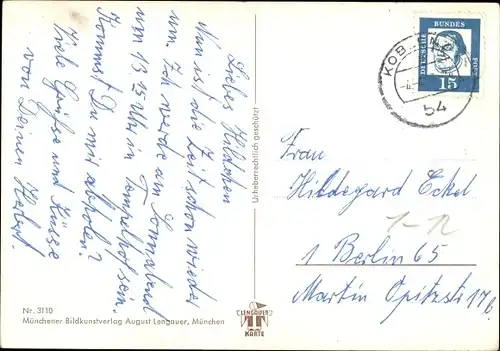 Liebes Hildchen
Nun ist die Zeit schon wieder
um. Ich werde am Sonnabend
um 13.15 Uhr in Tempelhof sein.
Kommst Du mir abholen?
Viele Grüße und Küsse
von Deinem Herbert.
Nr. 3110
Münchener Bildkunstverlag August Lengauer, München
Urheberrechtlich geschützt!
LENGAUER
KARTE
DEUTSCHE
BUNDES
POST
15
KOB
54
Frau
Hildegard Eckel
1-12
1 Berlin 65
Martin Opitzstr 17b.